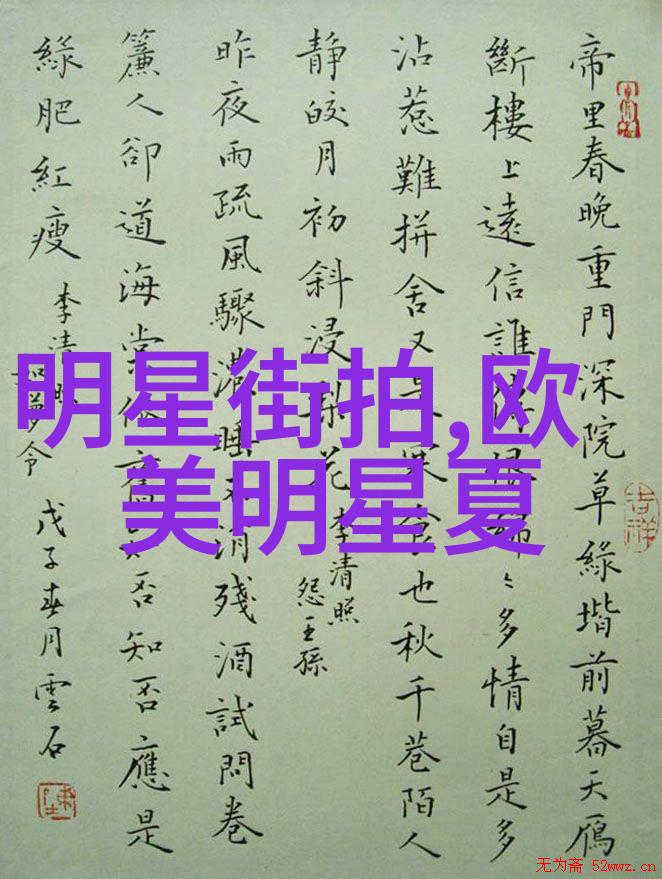 帝里春晚重門深院草緑堦前暮天鴈
斷樓上遠信誰恨綿〻多情自是多
沾惹難拼舍又是寒食也秋千巷陌人
靜皎月初斜浸梨花 李清照
怨王孫
昨夜雨疏風驟濃睡不消殘酒試問卷
簾人卻道海棠依舊知否知否應是
緑肥紅瘦 李清照
如夢令 戊子春月雲石
吉祥
明星街拍,欧
美明星夏
无为斋 52wwz.cn